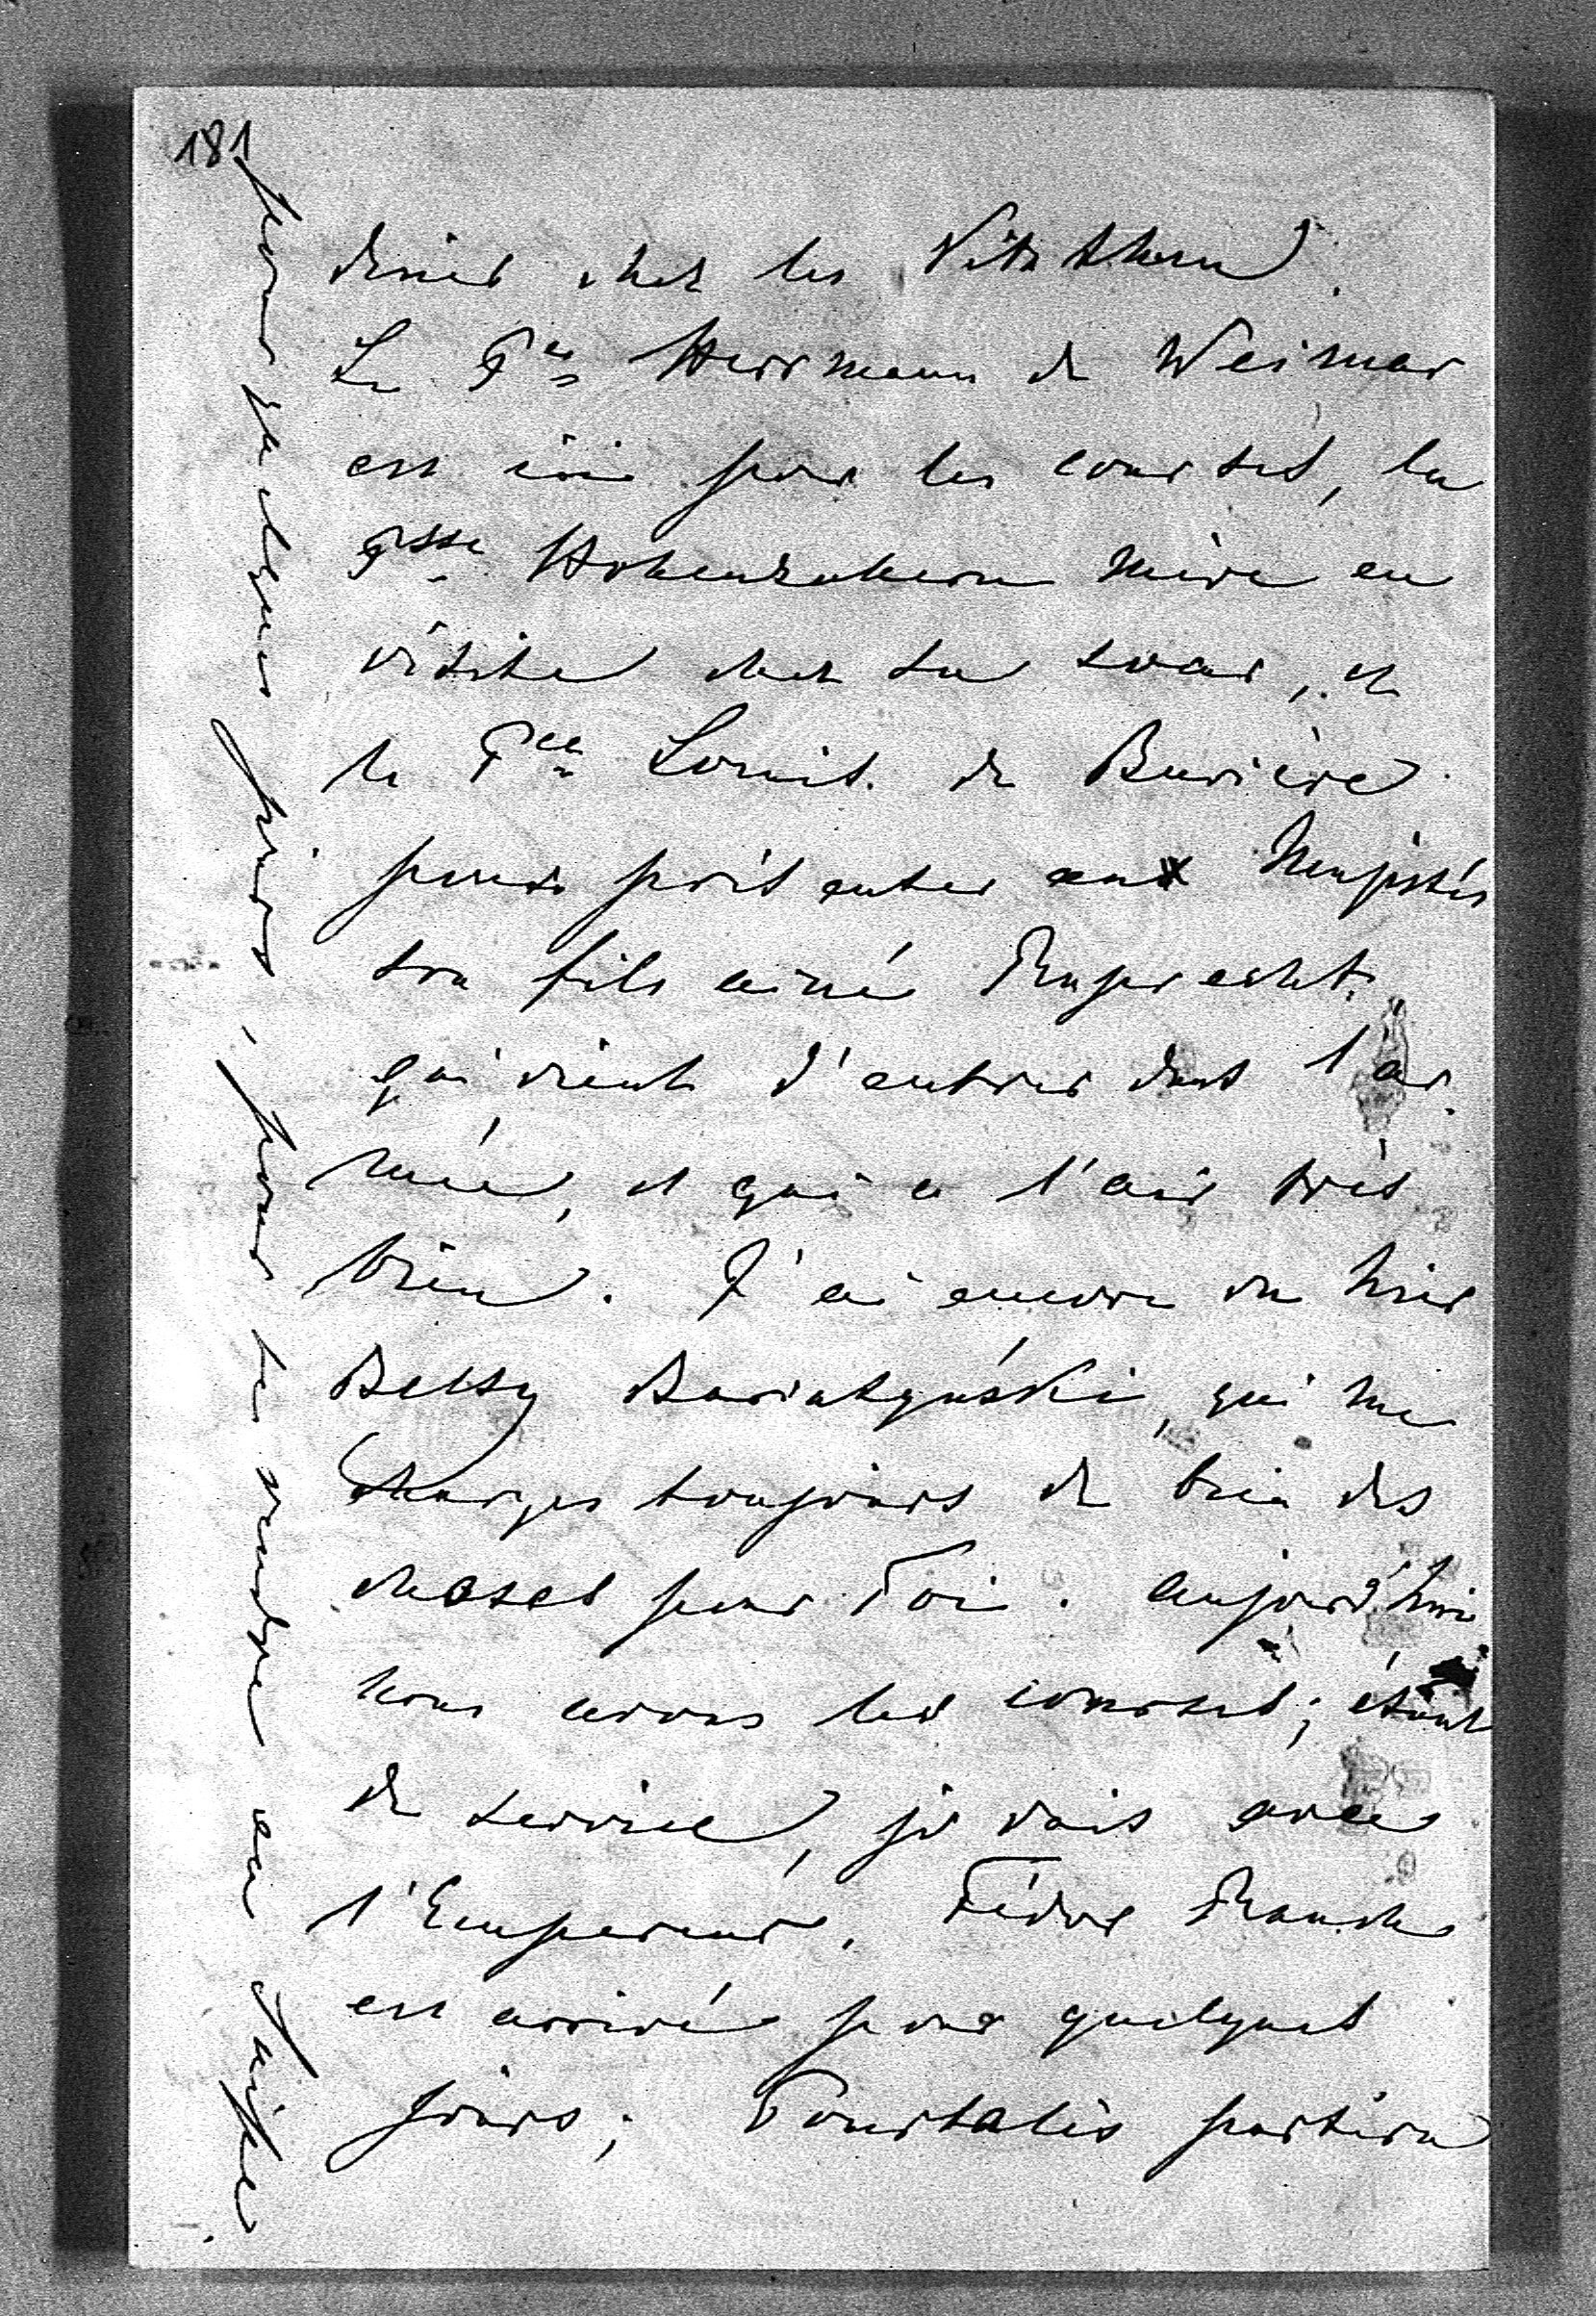 181
diner chez les Vitzthum.
Le Pce Herrmann de Weimar
est ici pour les courses, la
Psse Hohenzollern mère en
visite chez sa soeur, et
le Pce Louis de Bavière
pour présenter aux Majestés
son fils ainé Ruprecht,
qui vient d'entrer dans l'ar-
mée, et qui a l'air très
bien. J'ai encore vu hier
Betsy Bariatynski, qui me
charge toujours de bien des
choses pour Toi. Aujourd'hui
nous avons les courses; étant
de service, je vais avec
l'Empereur. Fédor Rauch
est arrivé pour quelques
jours; Pourtalès partira
pour quelques jours, pour se rendre en Suisse.